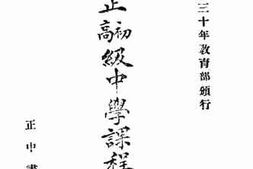 三十年教育部頒行
正
初高級中學課程
正中書